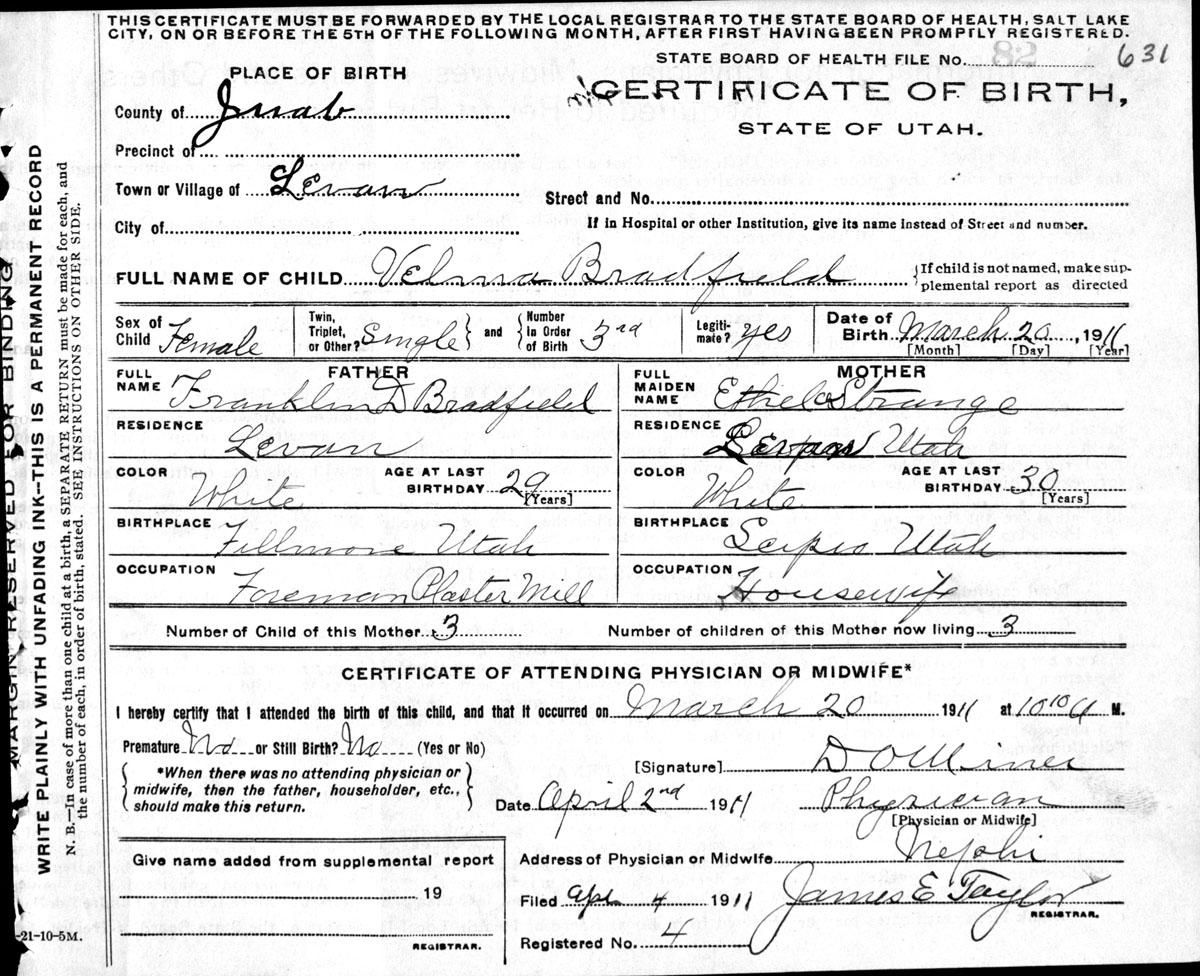 THIS CERTIFICATE MUST BE FORWARDED BY THE LOCAL REGISTRAR TO THE STATE BOARD OF HEALTH, SALT LAKE
CITY, ON OR BEFORE THE 5TH OF THE FOLLOWING MONTH, AFTER FIRST HAVING BEEN PROMPTLY REGISTERED.
STATE BOARD OF HEALTH FILE NO. 82 631
PLACE OF BIRTH
CERTIFICATE OF BIRTH,
STATE OF UTAH.
County of Juab
Precinct of
Town or Village of Levan
Street and No.
City of
If in Hospital or other Institution, give its name instead of Street and number.
FULL NAME OF CHILD Velma Bradfield
{If child is not named, make sup-
plemental report as directed
Sex of Child Female
Twin, Triplet, or Other? Single } and { Number in Order of Birth 3rd
Legiti-mate? yes
Date of Birth March 20, 1911
[Month] [Day] [Year]
FATHER
FULL NAME Franklin D Bradfield
RESIDENCE Levan
COLOR White
AGE AT LAST BIRTHDAY 29
[Years]
BIRTHPLACE Fillmore Utah
OCCUPATION Foreman Plaster Mill
MOTHER
FULL MAIDEN NAME Ethel Strange
RESIDENCE Levan Utah
COLOR White
AGE AT LAST BIRTHDAY 30
[Years]
BIRTHPLACE Scipio Utah
OCCUPATION Housewife
Number of Child of this Mother 3
Number of children of this Mother now living 3
CERTIFICATE OF ATTENDING PHYSICIAN OR MIDWIFE*
I hereby certify that I attended the birth of this child, and that it occurred on March 20 1911 at 10 10 a M.
Premature No or Still Birth? No (Yes or No)
{*When there was no attending physician or
midwife, then the father, householder, etc.,
should make this return.}
[Signature] D O Miner
Date April 2nd 1911
Physician
[Physician or Midwife]
Address of Physician or Midwife Nephi
Filed Apr 4 1911 James E Taylor
REGISTRAR.
Registered No. 4
Give name added from supplemental report
19
REGISTRAR.
-21-10-5M.
MARGIN RESERVED FOR BINDING
WRITE PLAINLY WITH UNFADING INK—THIS IS A PERMANENT RECORD
N. B.—In case of more than one child at a birth, a SEPARATE RETURN must be made for each, and
the number of each, in order of birth, stated. SEE INSTRUCTIONS ON OTHER SIDE.